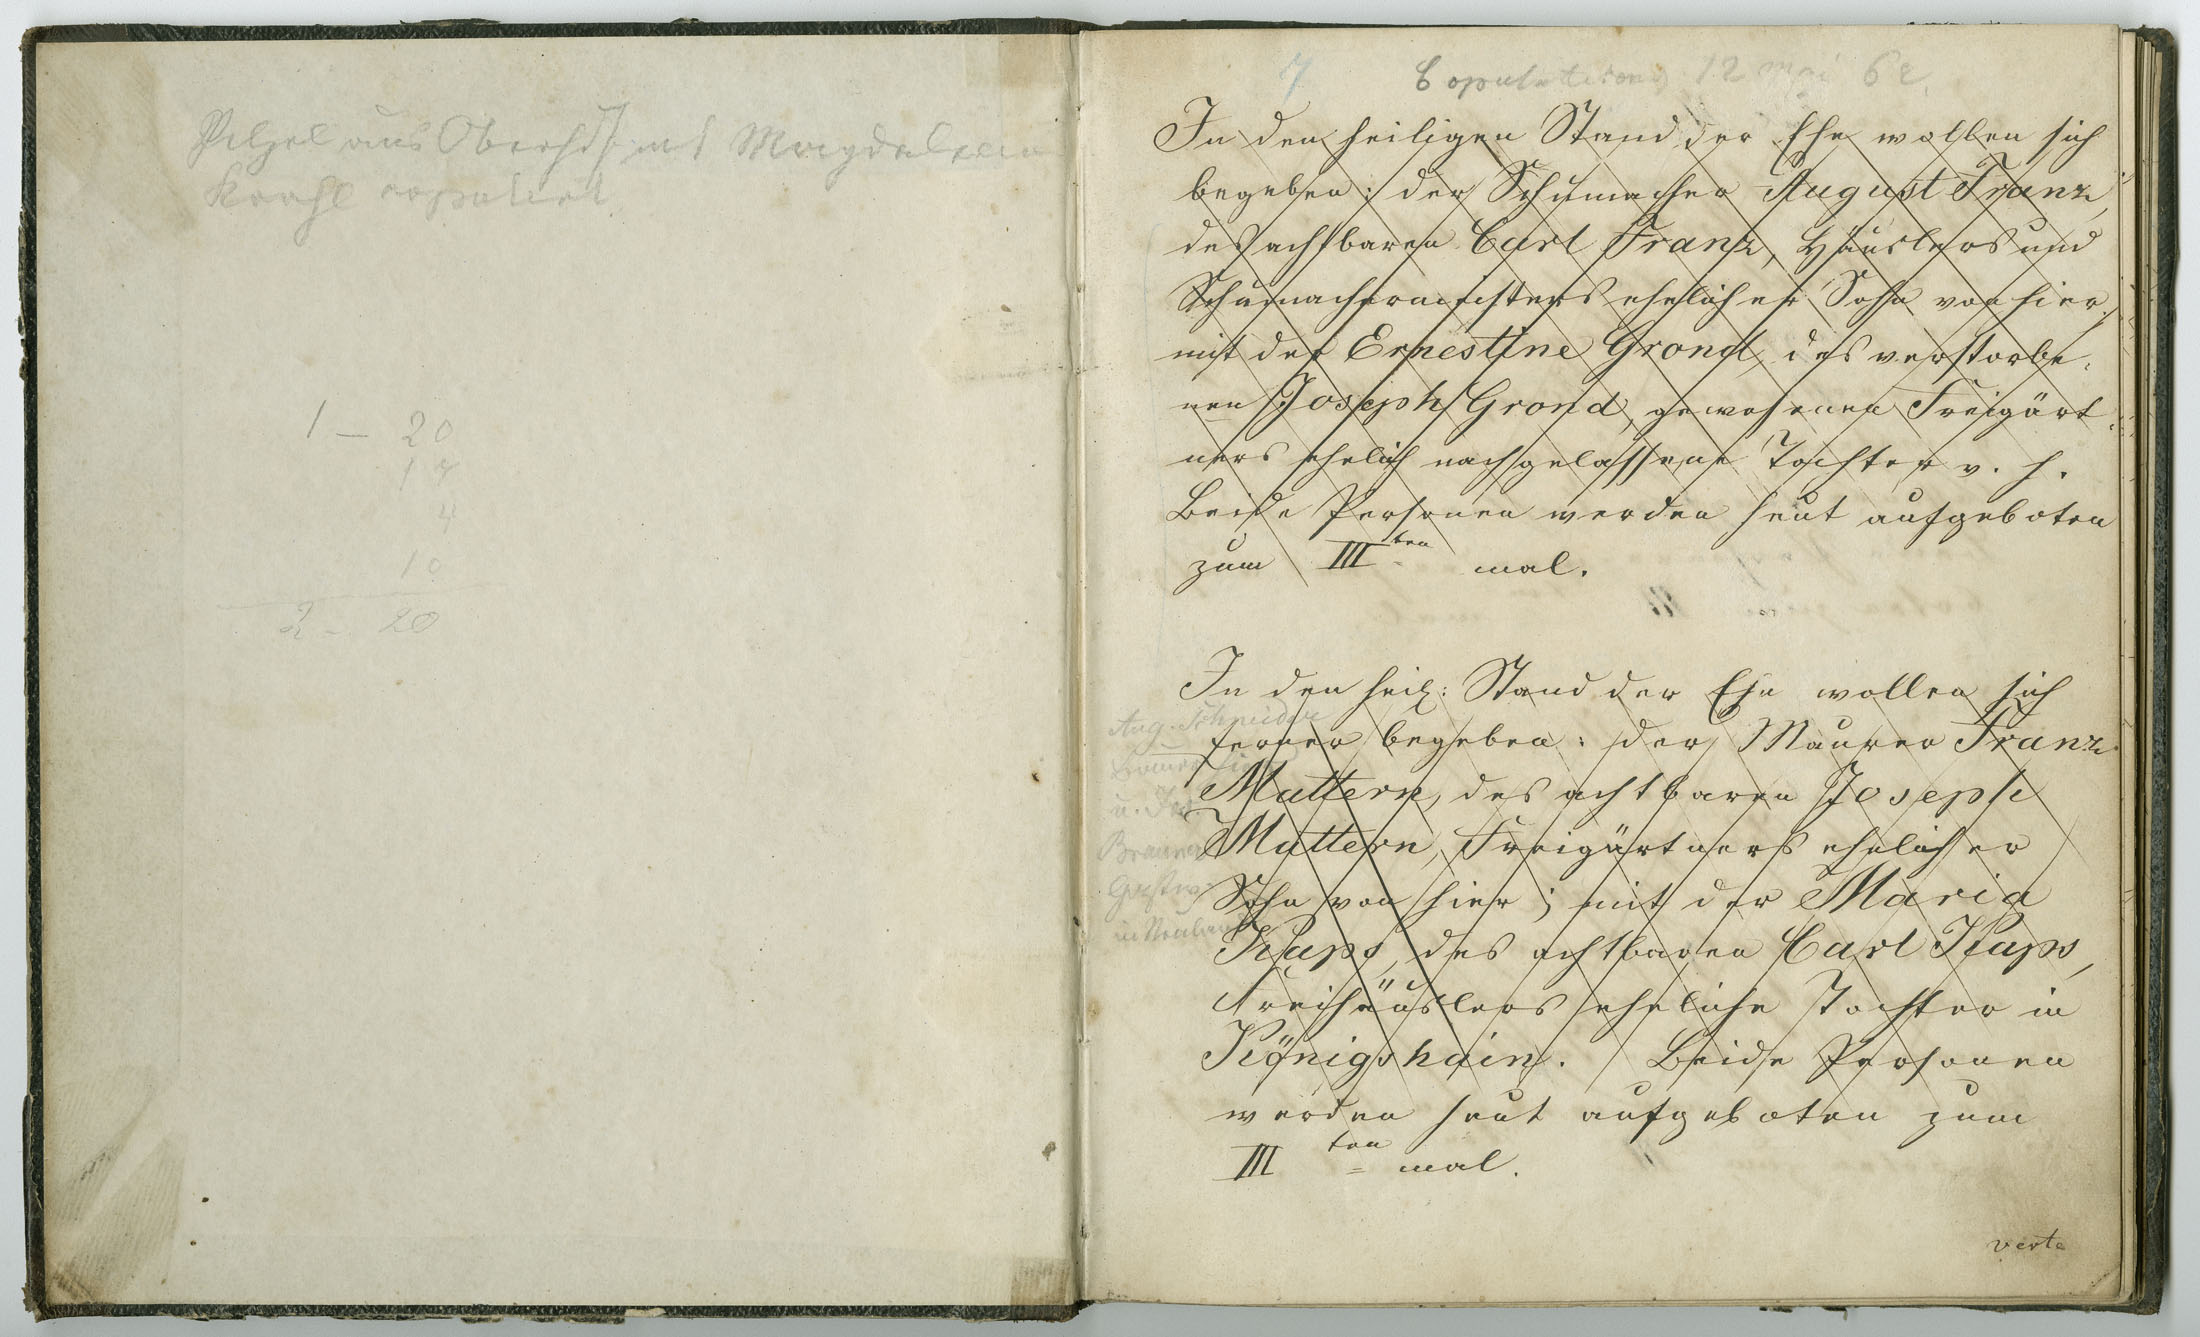 Pelzel aus Obershdf mit Magdalena
copuliert
1 – 20
1
4
10
2 – 20
7 Copulationen 12 Mai 62.
In den heiligen Stand der Ehe wollen sich
begeben: der Schumacher August Franz,
des achtbaren Carl Franz, Häuslers und
Schumachermeisters ehelicher Sohn von hier;
mit der Ernestine Grond, des verstorbe-
nen Joseph Grond, gewesenen Freigärt-
ners ehelich nachgelassene Tochter v. h.
Beide Personen werden heut aufgeboten
zum III ten mal.
In den heil: Stand der Ehe wollen sich
ferner begeben: der Maurer Franz
Mattern, des achtbaren Joseph
Mattern, Freigärtners ehelicher
Sohn von hier; mit der Maria
Kaps, des achtbaren Carl Kaps,
Freihäuslers eheliche Tochter in
Königshain. Beide Personen
werden heut aufgeboten zum
III ten mal.
Aug. Schneider
u.
Brauner
in
verte